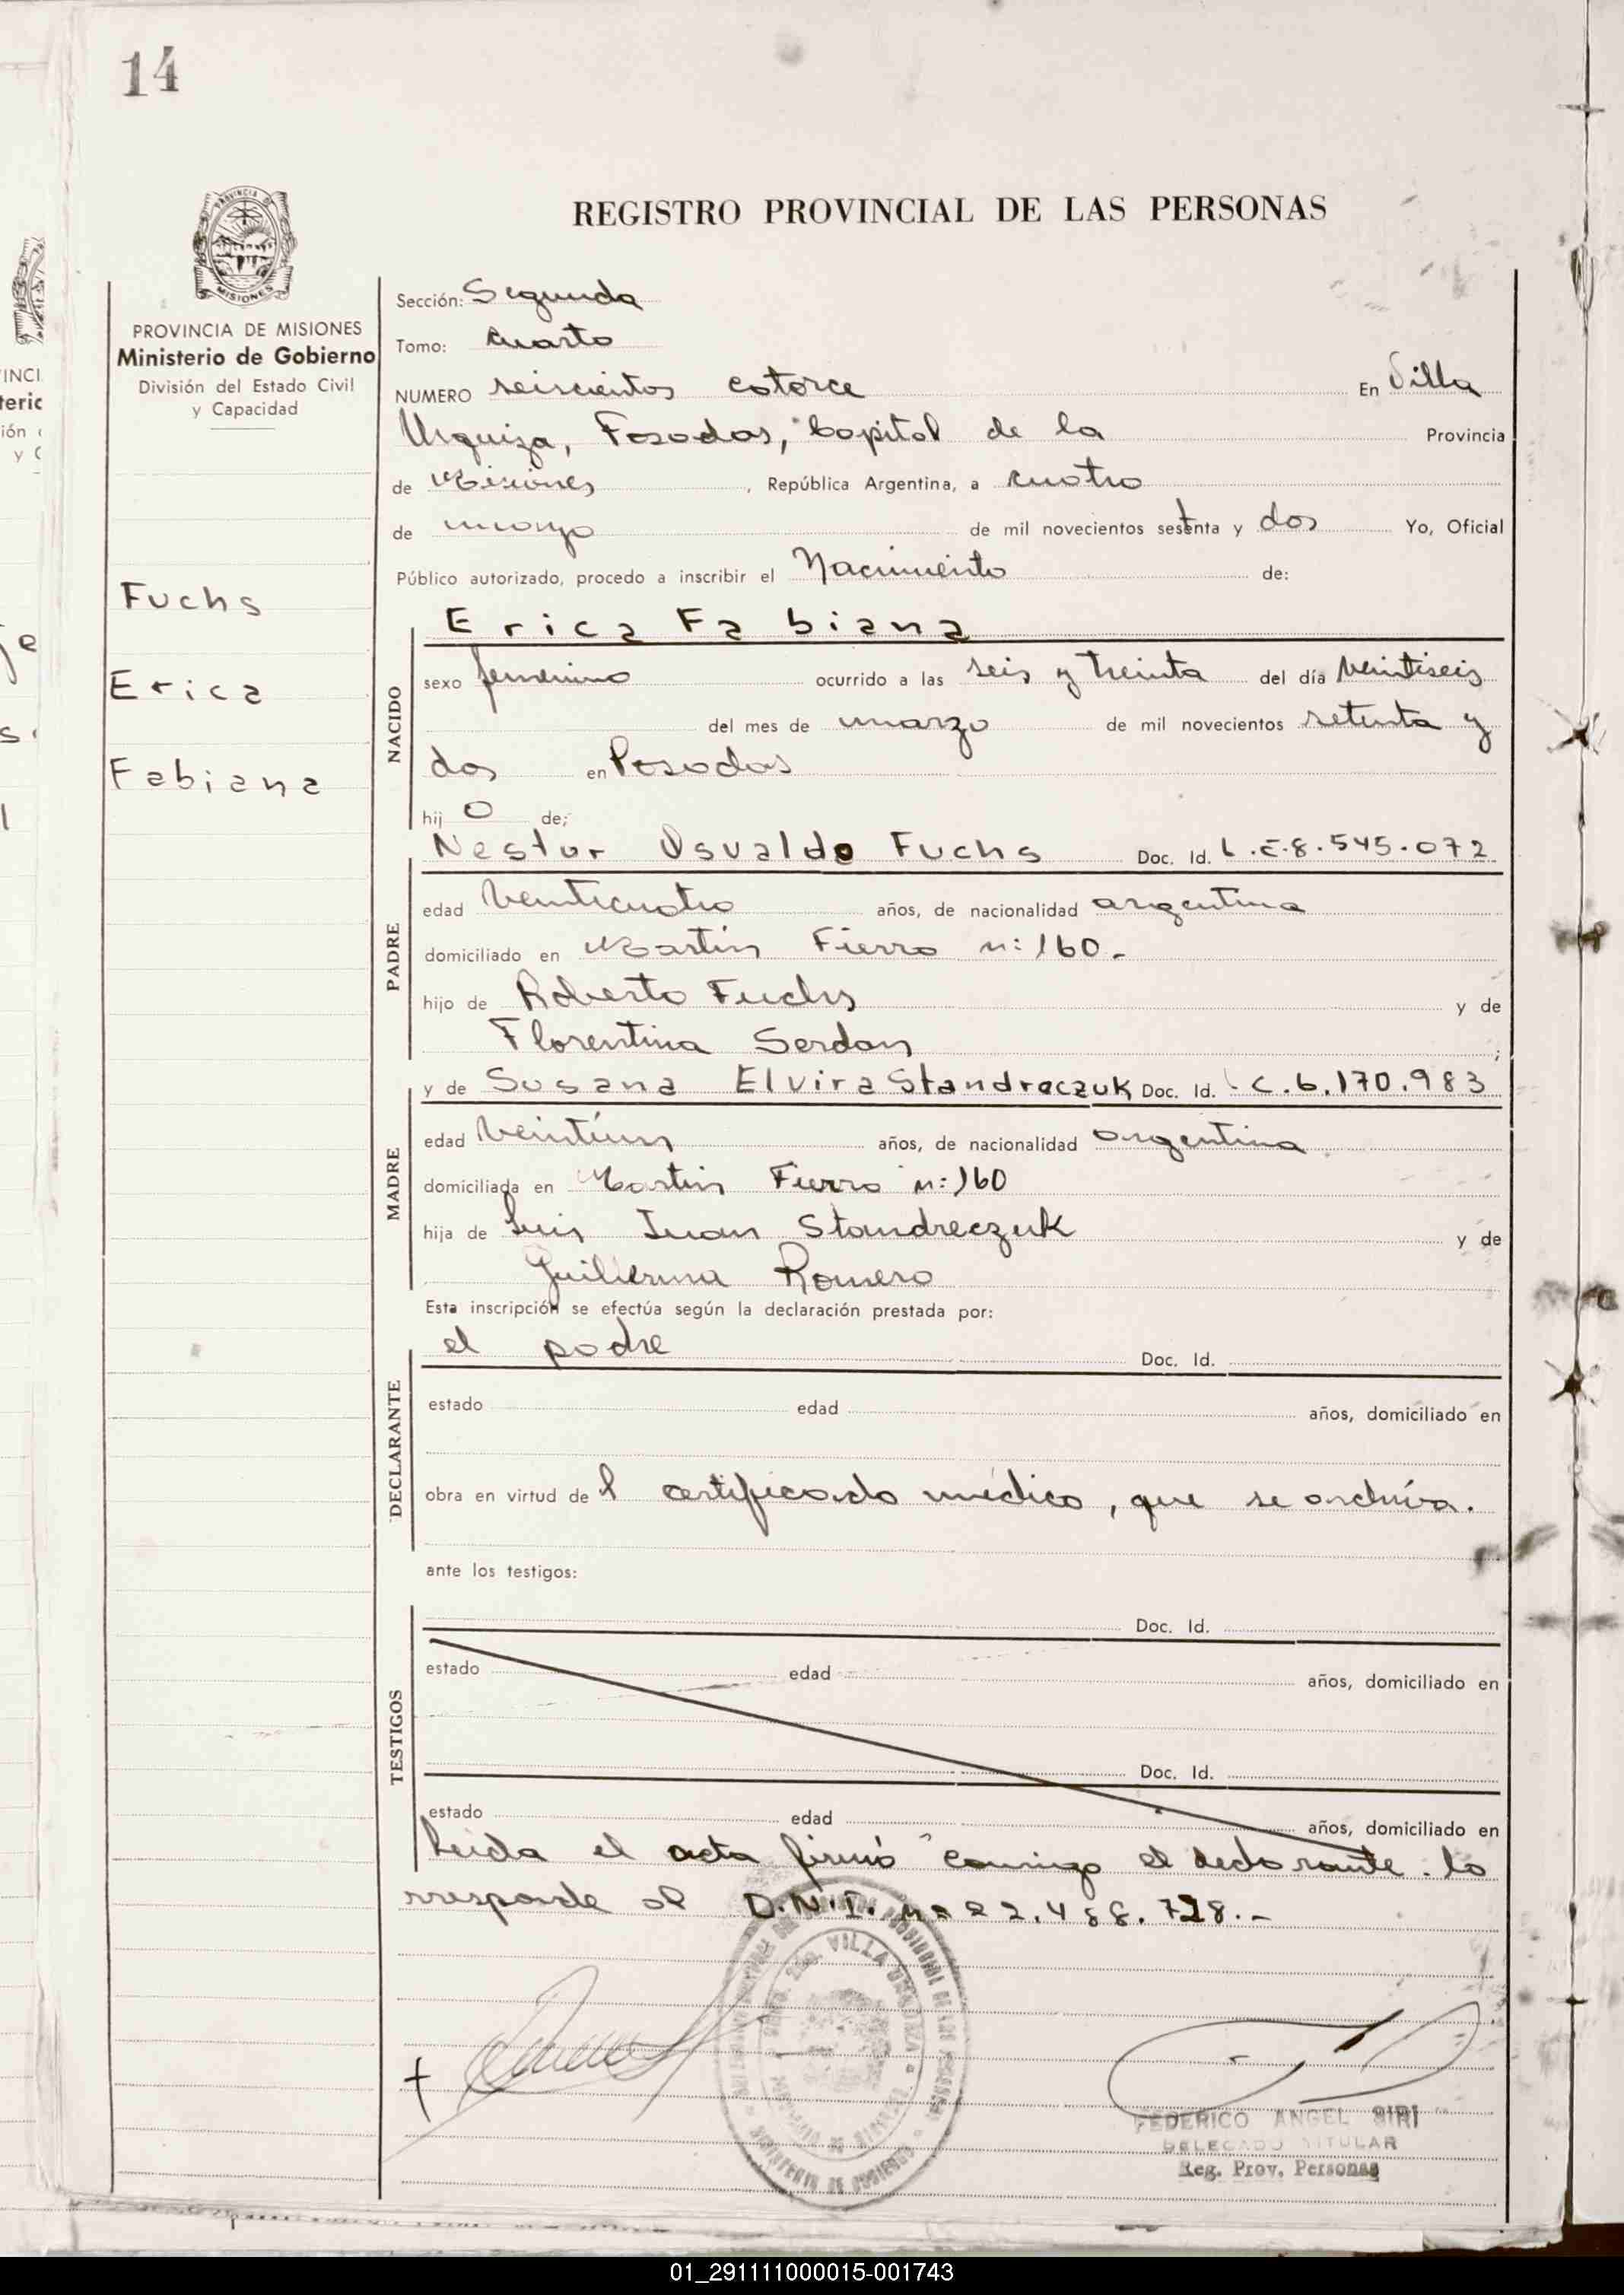 14
REGISTRO PROVINCIAL DE LAS PERSONAS
PROVINCIA DE MISIONES
Ministerio de Gobierno
División del Estado Civil
y Capacidad
Fuchs
Erica
Fabiana
Sección: Segunda
Tomo: cuarto
NUMERO seiscientos catorce En Villa
Urquiza, Posadas, Capital de la Provincia
de Misiones, República Argentina, a cuatro
de mayo de mil novecientos setenta y dos Yo, Oficial
Público autorizado, procedo a inscribir el Nacimiento de:
Erica Fabiana
NACIDO
sexo femenino ocurrido a las seis y treinta del día veintiseis
del mes de marzo de mil novecientos setenta y
dos en Posadas
hij o de;
Nestor Osvaldo Fuchs Doc. Id. L.E.8.545.072
PADRE
edad veinticuatro años, de nacionalidad argentina
domiciliado en Martín Fierro n: 160.-
hijo de Roberto Fuchs y de
Florentina Serdan;
y de Susana Elvira Standreczuk Doc. Id. L.C.6.170.983
MADRE
edad veintiún años, de nacionalidad argentina
domiciliada en Martin Fierro n: 160
hija de Luis Juan Standreczuk y de
Guillerma Romero
Esta inscripción se efectúa según la declaración prestada por:
el padre Doc. Id.
DECLARANTE
estado edad años, domiciliado en
obra en virtud de l certificado médico, que se archiva.
ante los testigos:
Doc. Id.
TESTIGOS
estado edad años, domiciliado en
Doc. Id.
estado edad años, domiciliado en
Leida el acta firmó conmigo el declarante. Co
rresponde al D.N.I. nº 22.488.728.-
VILLA URQUIZA
FEDERICO ANGEL SIRI
DELEGADO TITULAR
Reg. Prov. Personas
01_291111000015-001743